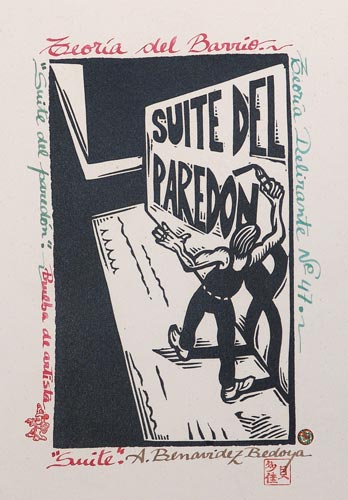 Teoría del Barrio.
SUITE DEL
PAREDÓN
Teoría Delirante Nº 47.
"Suite del paredón".
Prueba de artista
"Suite". A. Benavidez Bedoya